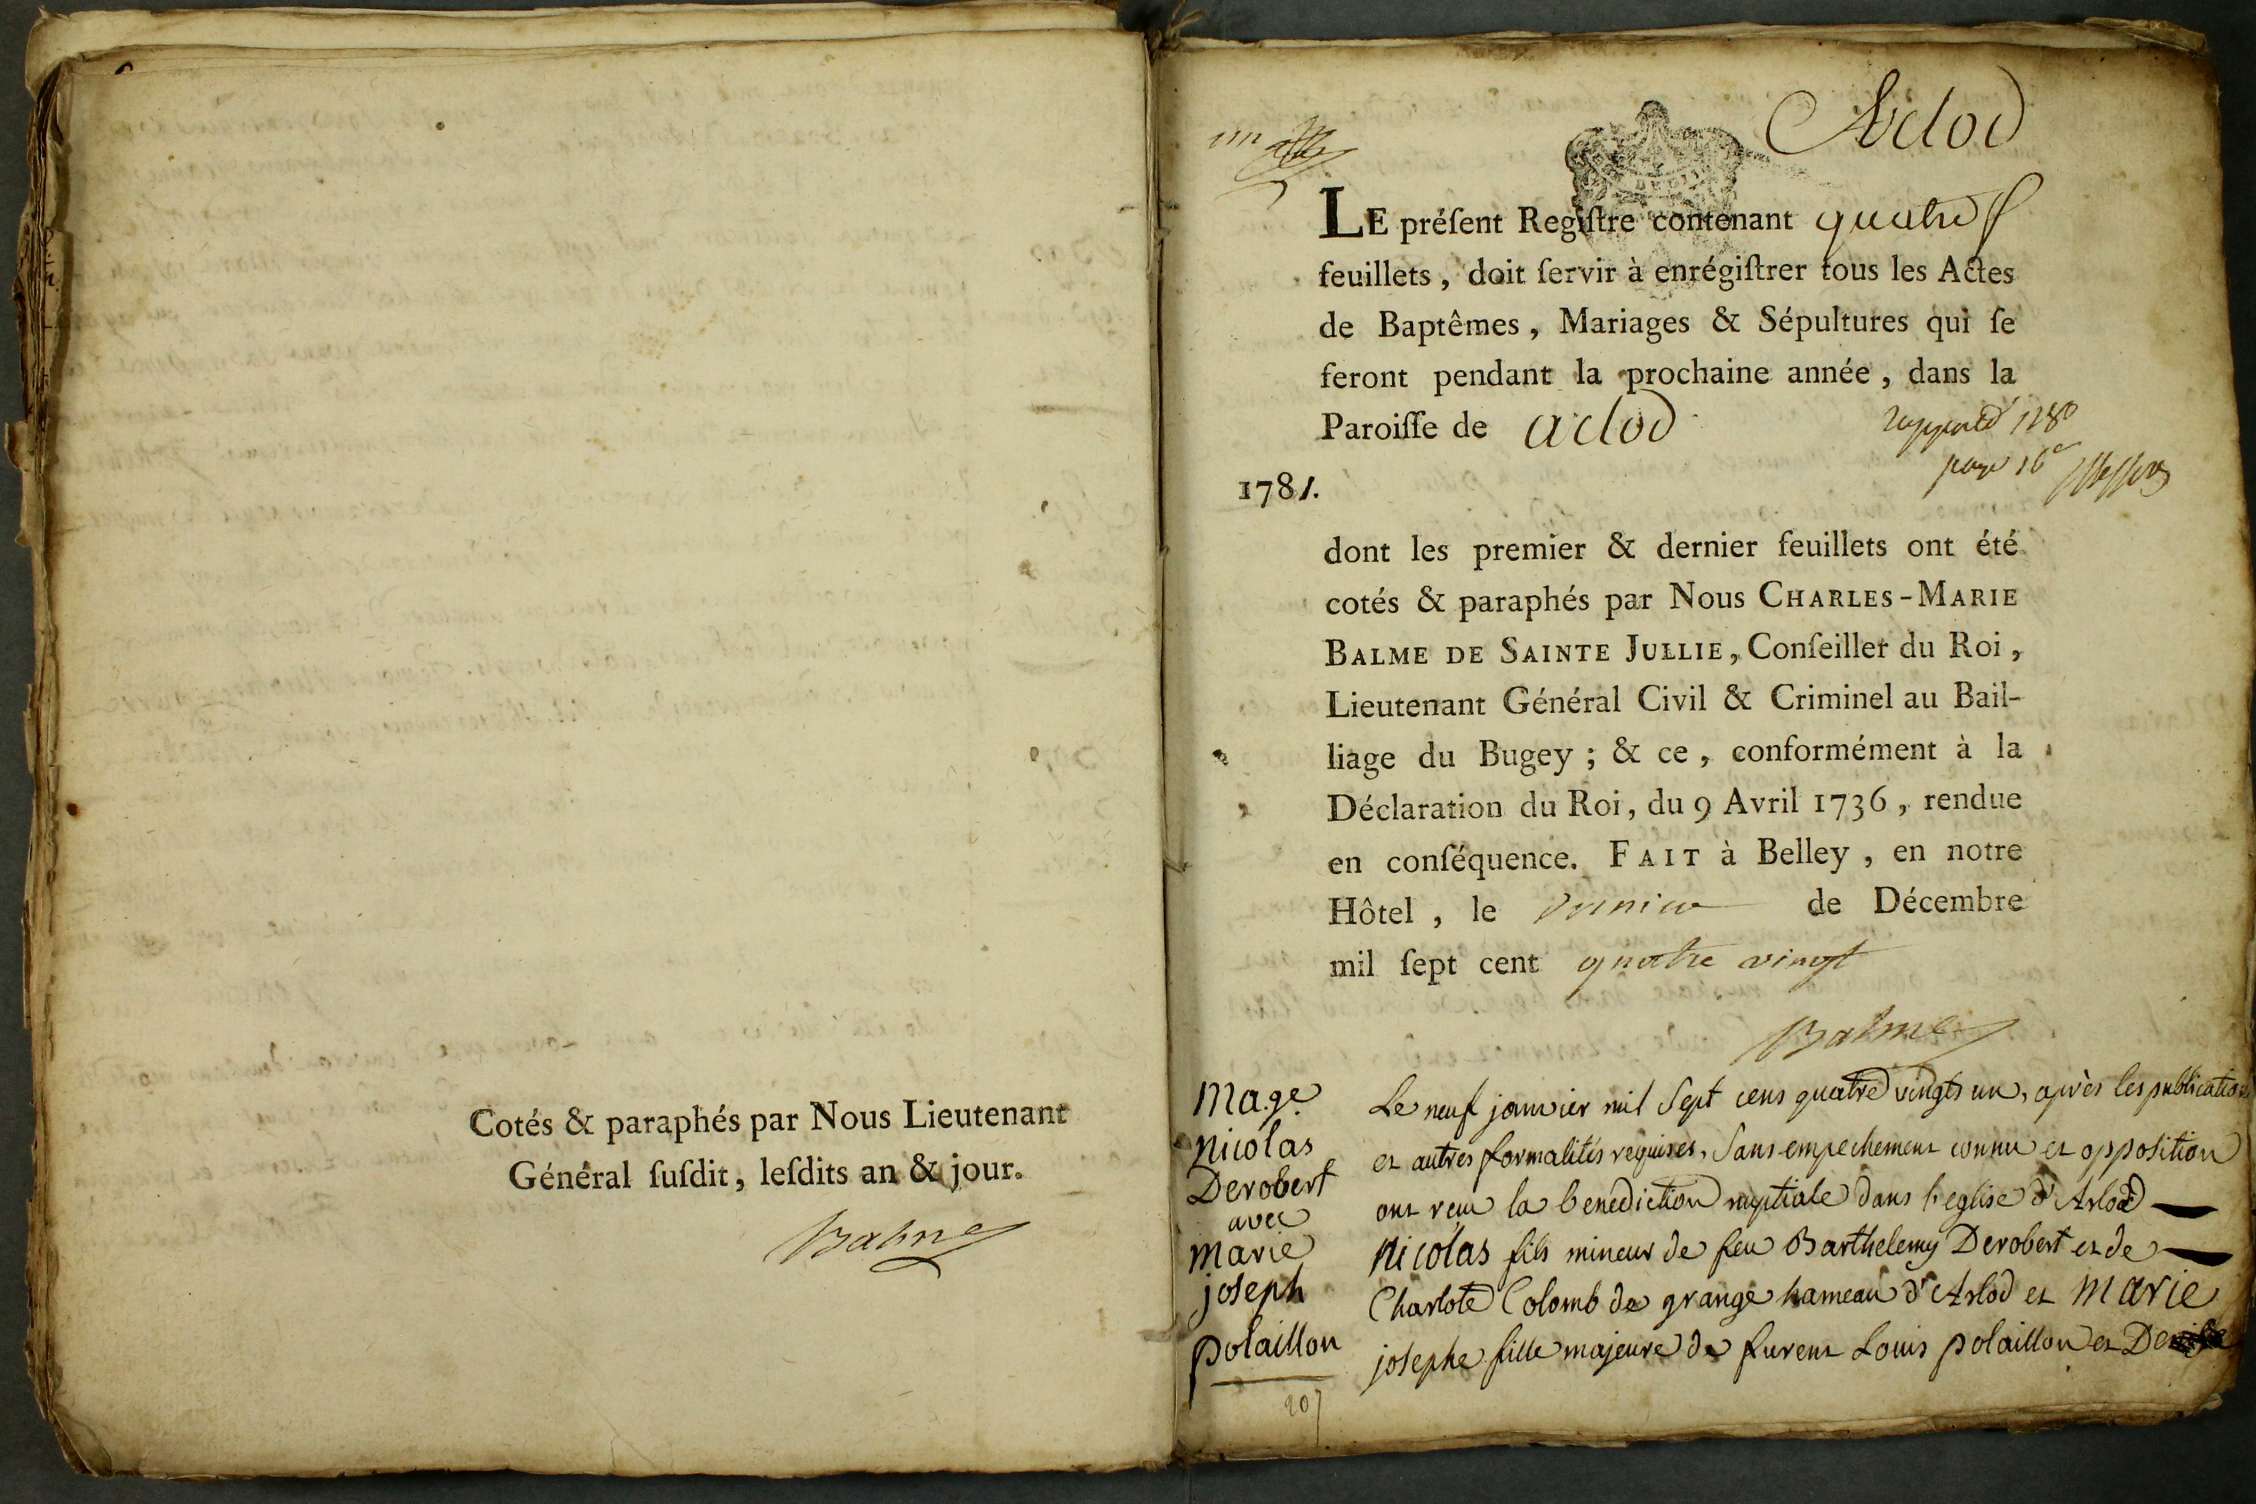 Cotés & paraphés par Nous Lieutenant
Général ſuſdit, leſdits an & jour.
Balme
Arlod
LE préſent Regiſtre contenant quatre
feuillets, doit ſervir à enrégiſtrer tous les Actes
de Baptêmes, Mariages & Sépultures qui ſe
feront pendant la prochaine année, dans la
Paroiſſe de arlod
rapporté 1780
page 16e
1781.
dont les premier & dernier feuillets ont été
cotés & paraphés par Nous CHARLES-MARIE
BALME DE SAINTE JULLIE, Conſeiller du Roi,
Lieutenant Général Civil & Criminel au Bail-
liage du Bugey; & ce, conformément à la
Déclaration du Roi, du 9 Avril 1736, rendue
en conſéquence. FAIT à Belley, en notre
Hôtel, le de Décembre
mil ſept cent quatre vingt
Balme
Mage.
Nicolas
Derobert
avec
Marie
joseph
polaillon
Le neuf janvier mil Sept cens quatre vingts un, après les publications
et autres formalités requises, Sans empechement connu et opposition
ont reçu la benediction nuptiale dans l'eglise d'Arlod
Nicolas fils mineur de feu Barthelemy Derobert et de
Charlote Colomb de grange hameau d'Arlod et Marie
josephe fille majeure de furent Louis polaillon et
207